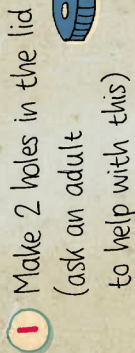 1 Make 2 holes in the lid
(ask an adult
to help with this)